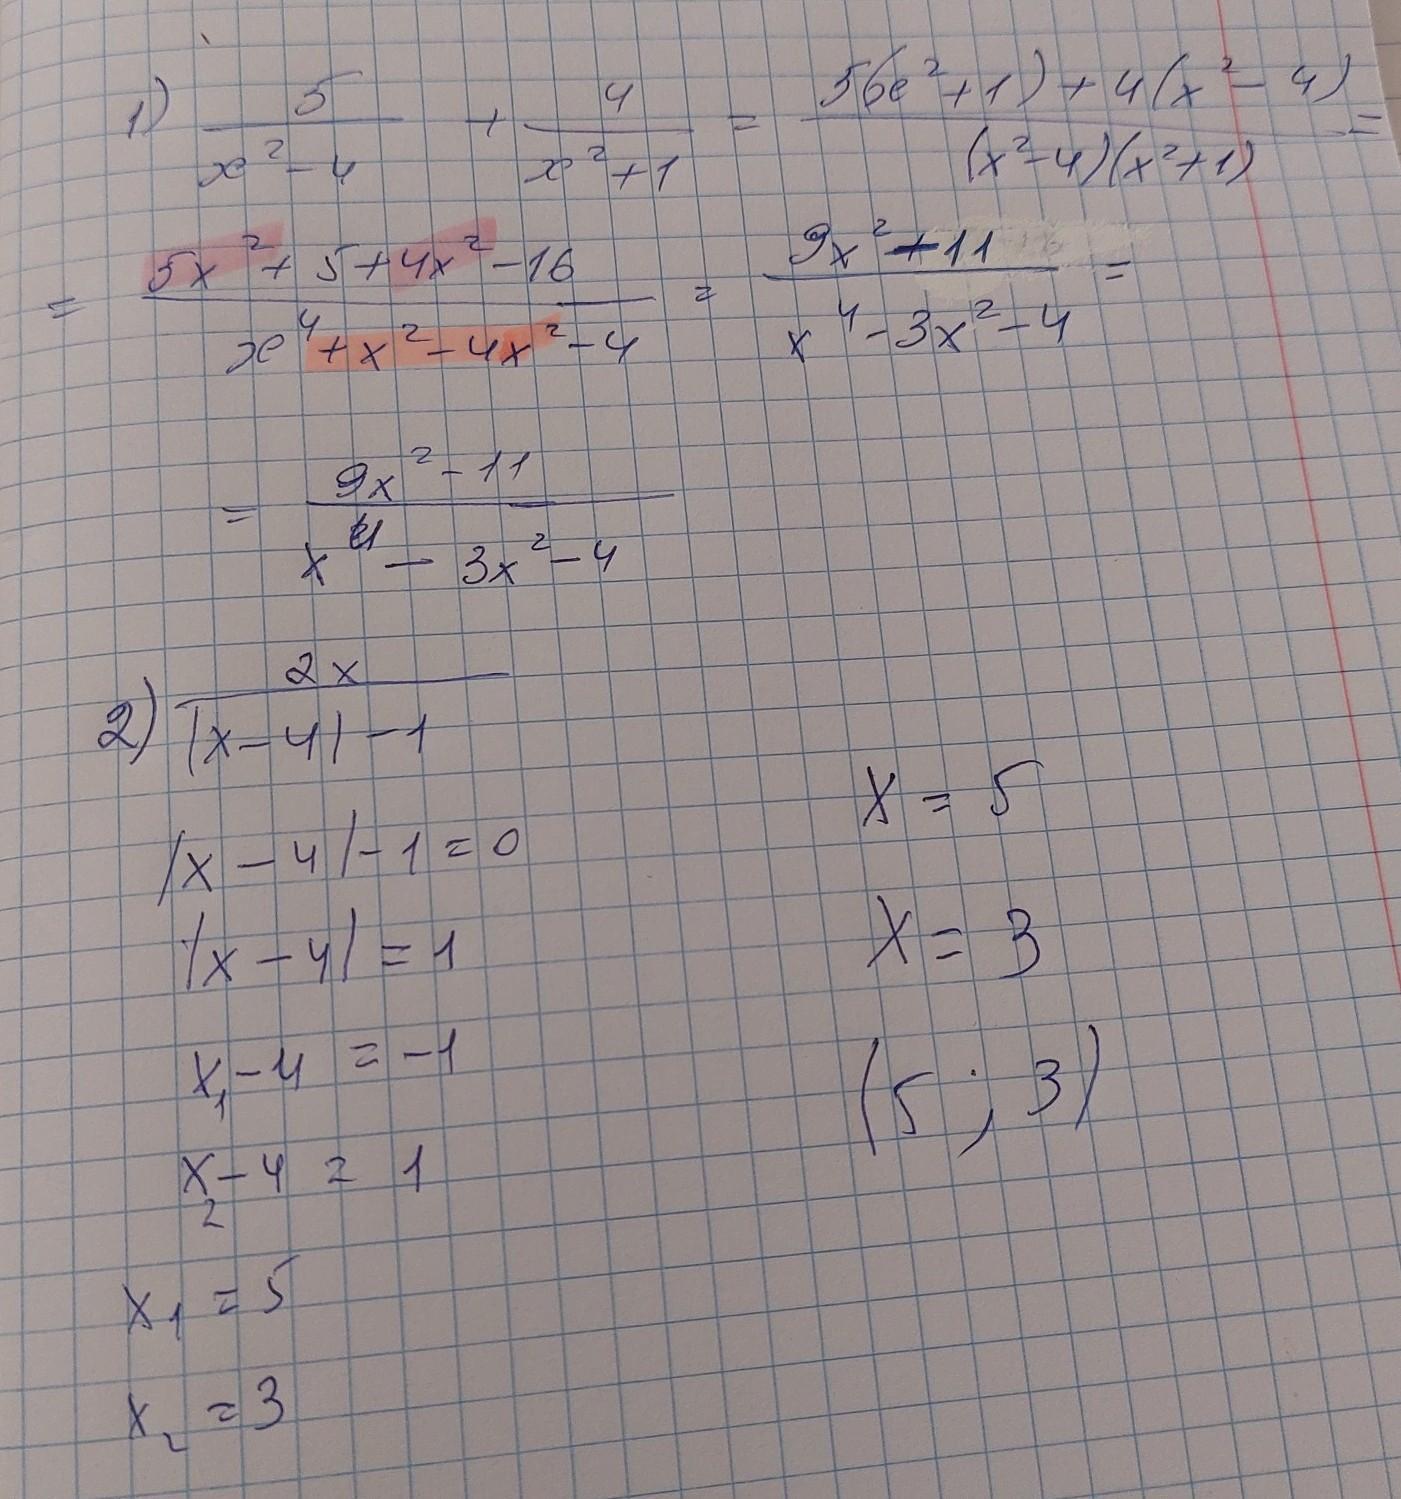 1) 5/(x²-4) + 4/(x²+1) = (5(x²+1)+4(x²-4))/((x²-4)(x²+1)) =
= (5x²+5+4x²-16)/(x⁴+x²-4x²-4) = (9x²+11)/(x⁴-3x²-4) =
= (9x²-11)/(x⁴-3x²-4)
2) 2x/(|x-4|-1)
|x-4|-1=0
|x-4|=1
x₁-4=-1
x₂-4=1
x₁=5
x₂=3
x=5
x=3
(5;3)